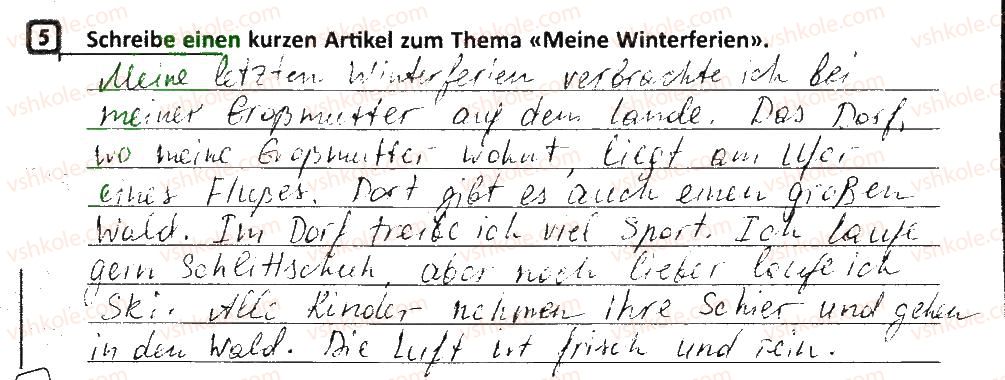 5 Schreibe einen kurzen Artikel zum Thema «Meine Winterferien».
Meine letzten Winterferien verbrachte ich bei
meiner Großmutter auf dem Lande. Das Dorf,
wo meine Großmutter wohnt, liegt am Ufer
eines Flußes. Dort gibt es auch einen großen
Wald. Im Dorf treibe ich viel Sport. Ich laufe
gern Schlittschuh, aber noch lieber laufe ich
Ski. Alle Kinder nehmen ihre Schier und gehen
in den Wald. Die Luft ist frisch und rein.